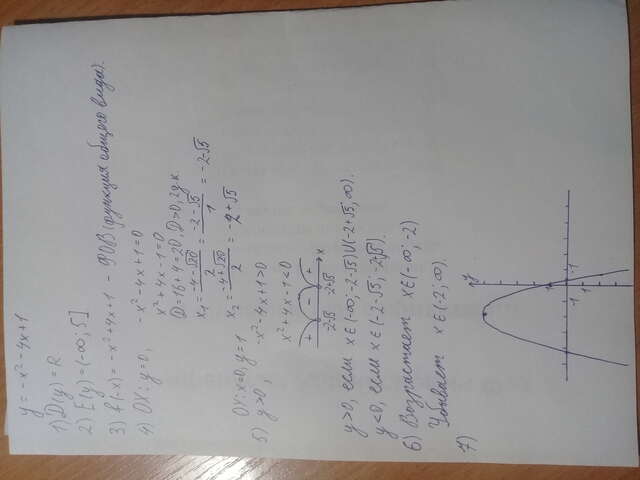 y = -x² - 4x + 1
1) D(y) = R
2) E(y) = (-∞; 5]
3) f(-x) = -x² + 4x + 1 - ФОВ (функция общего вида).
4) OX: y = 0, -x² - 4x + 1 = 0
x² + 4x - 1 = 0
D = 16 + 4 = 20, D > 0, 2 д.к
x₁ = (-4 - √20)/2 = (-2 - √5)/1 = -2 - √5
x₂ = (-4 + √20)/2 = -2 + √5
OY: x = 0, y = 1
5) y > 0, -x² - 4x + 1 > 0
x² + 4x - 1 < 0
+ - +
-2-√5 -2+√5 x
y > 0, если x ∈ (-∞; -2-√5) U (-2+√5; ∞).
y < 0, если x ∈ (-2-√5; -2+√5).
6) Возрастает x ∈ (-∞; -2)
Убывает x ∈ (-2; ∞).
7)
y
1
-1 -1
1